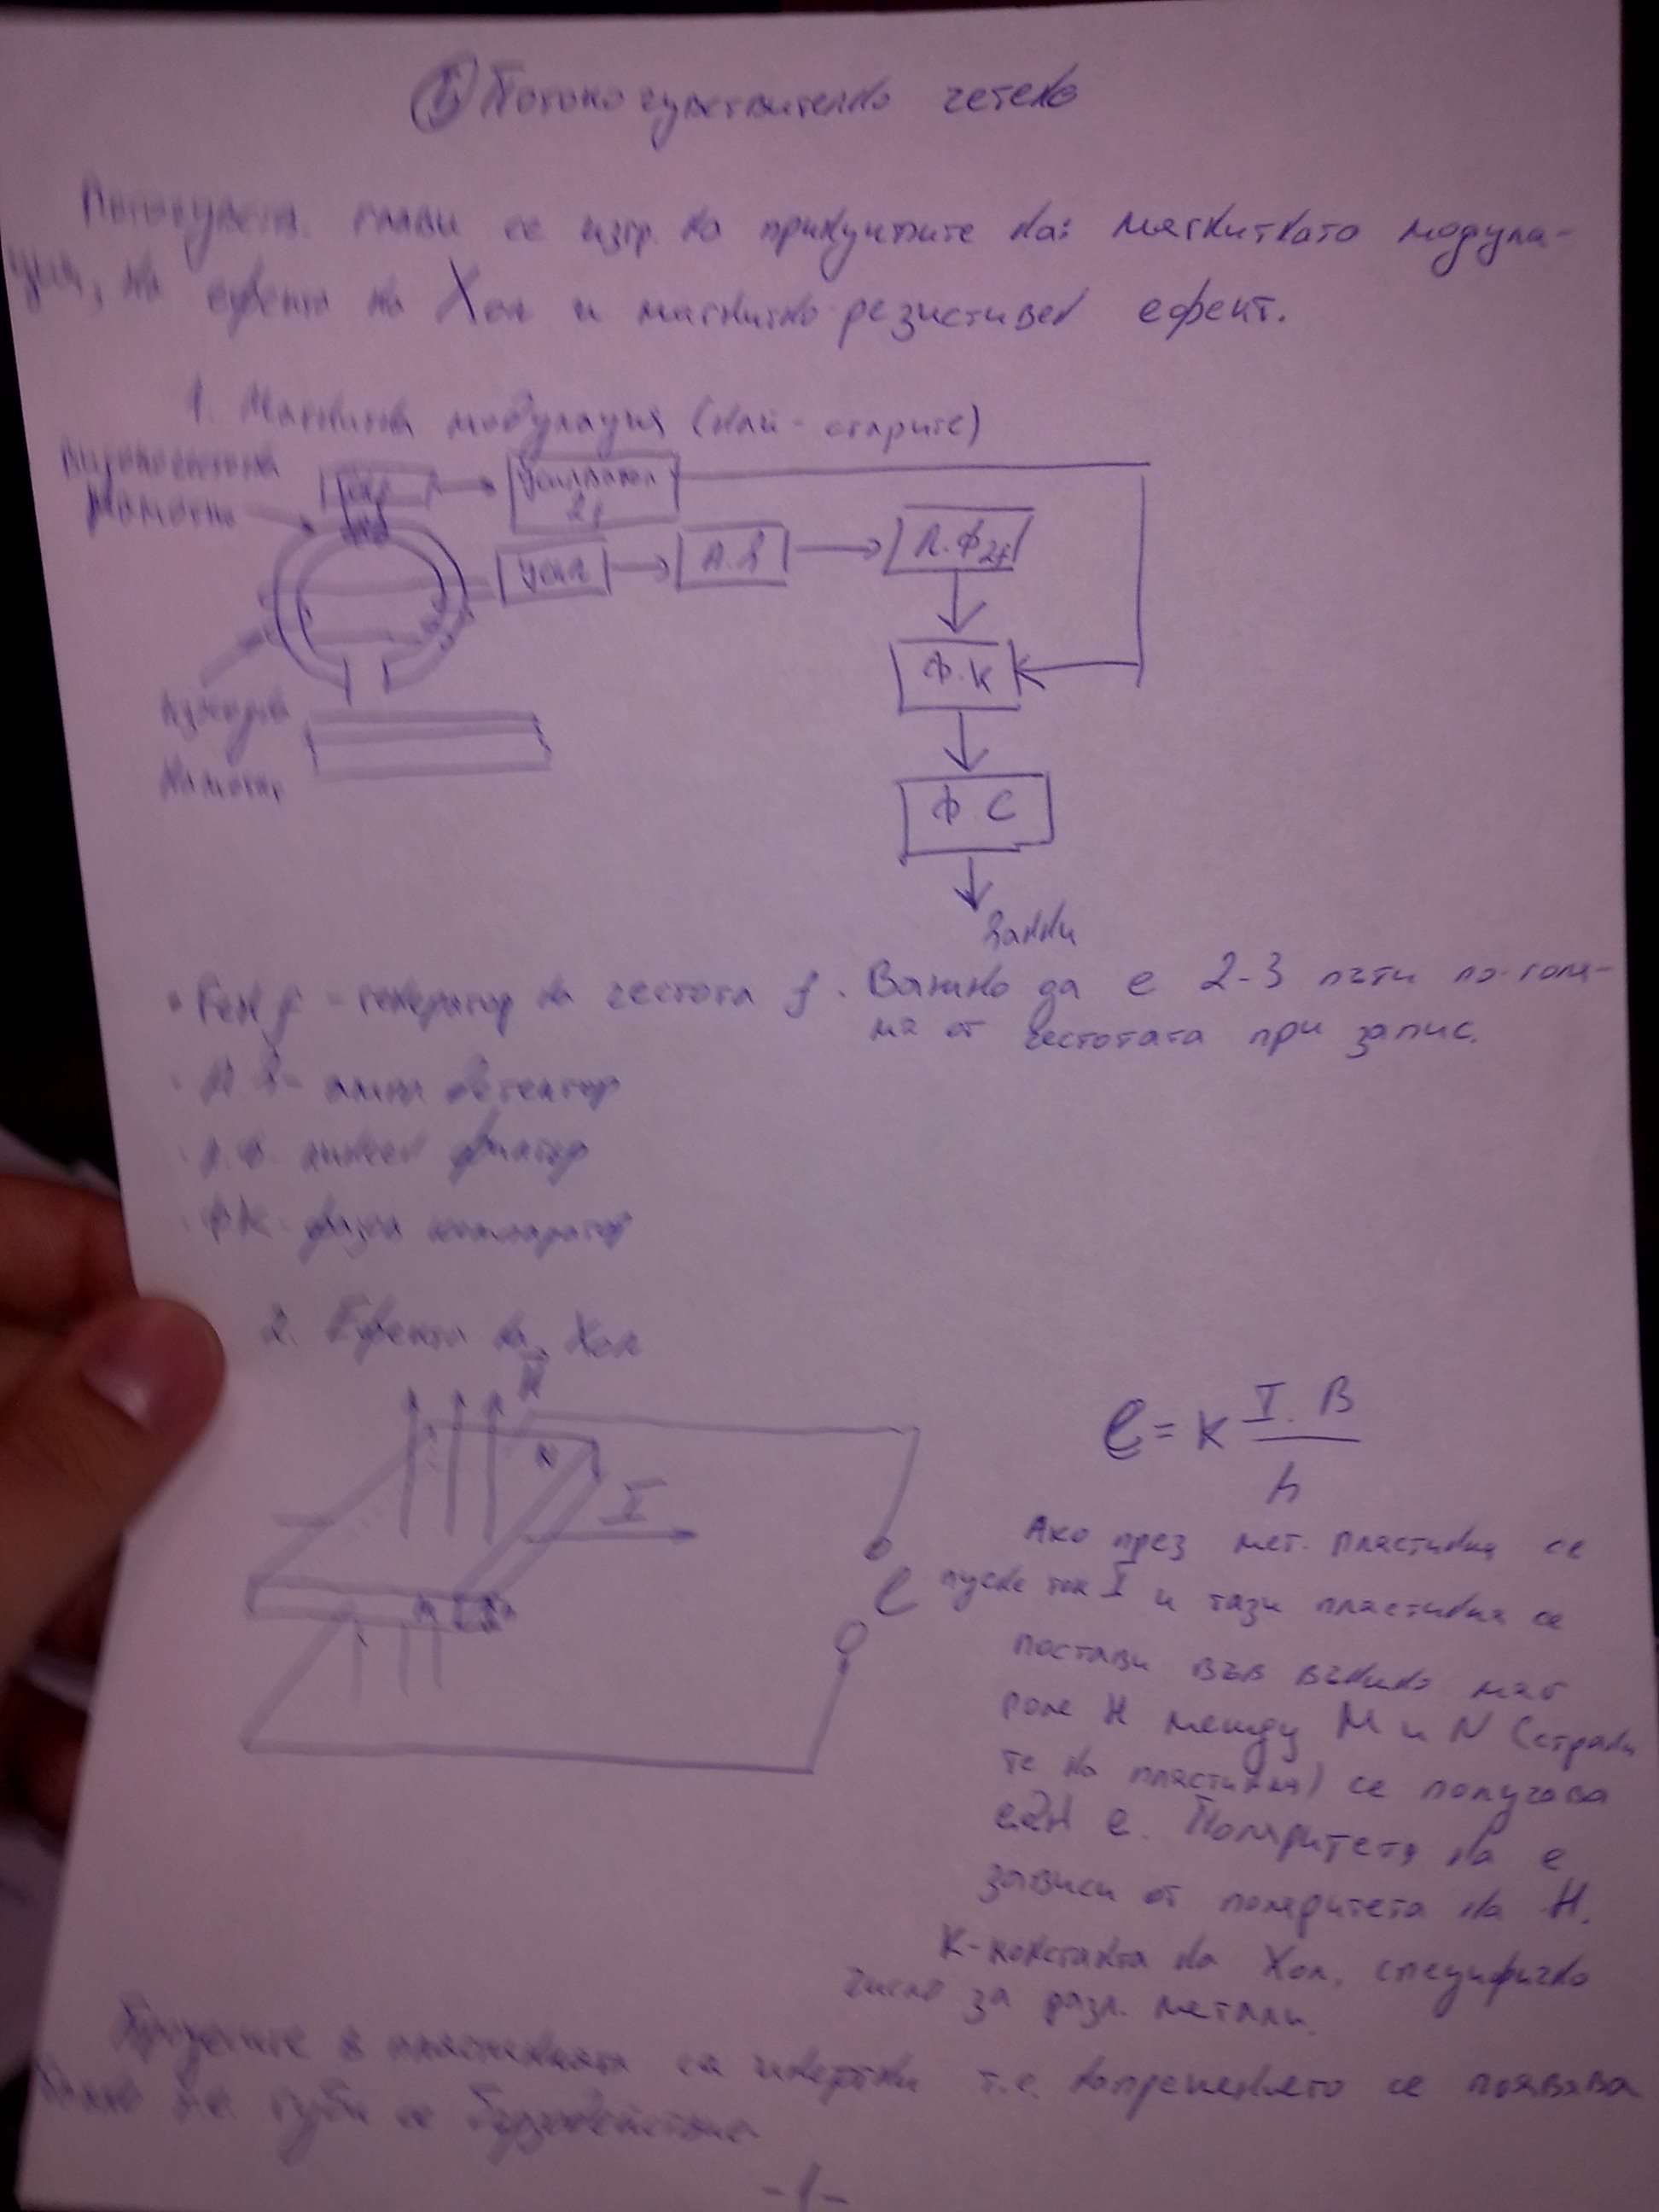 Потокочувствително четене
глави се изгр. на принципите на: магнитната модула-
ция, на ефекта на Хол и магнитно-резистивен ефект.
1. Магнитна модулация (най-старите)
намотка
Ген f
Усилвател
2f
Усил
А.Д
Л.Ф2f
Ф.К
Ф.С
Данни
изходна
намотка
• Ген f - генератор на честота f. Важно да е 2-3 пъти по-голя-
ма от честотата при запис.
• А.Д - амп. детектор
• Л.Ф. линеен филтър
• ФК - фазов компаратор
2. Ефекта на Хол
H
N
I
M
e
e = K I.B
h
Ако през мет. пластина се
пусне ток I и тази пластина се
постави във външно маг
поле H между M и N (страни
те на пластината) се получава
едн e. Поляритета на e
зависи от поляритета на H.
K-константа на Хол, специфично
число за разл. метали.
Процесите в пластината са инертни т.е. напрежението се появява
т.е. губи се бързодействие
-1-